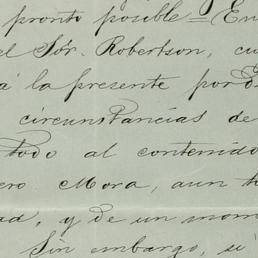 pronto posible = En
el Sór. Robertson, cu
á la presente por D
circunstancias de
todo al contenido
ero Mora, aun h
ad, y de un mom
Sin embargo, si